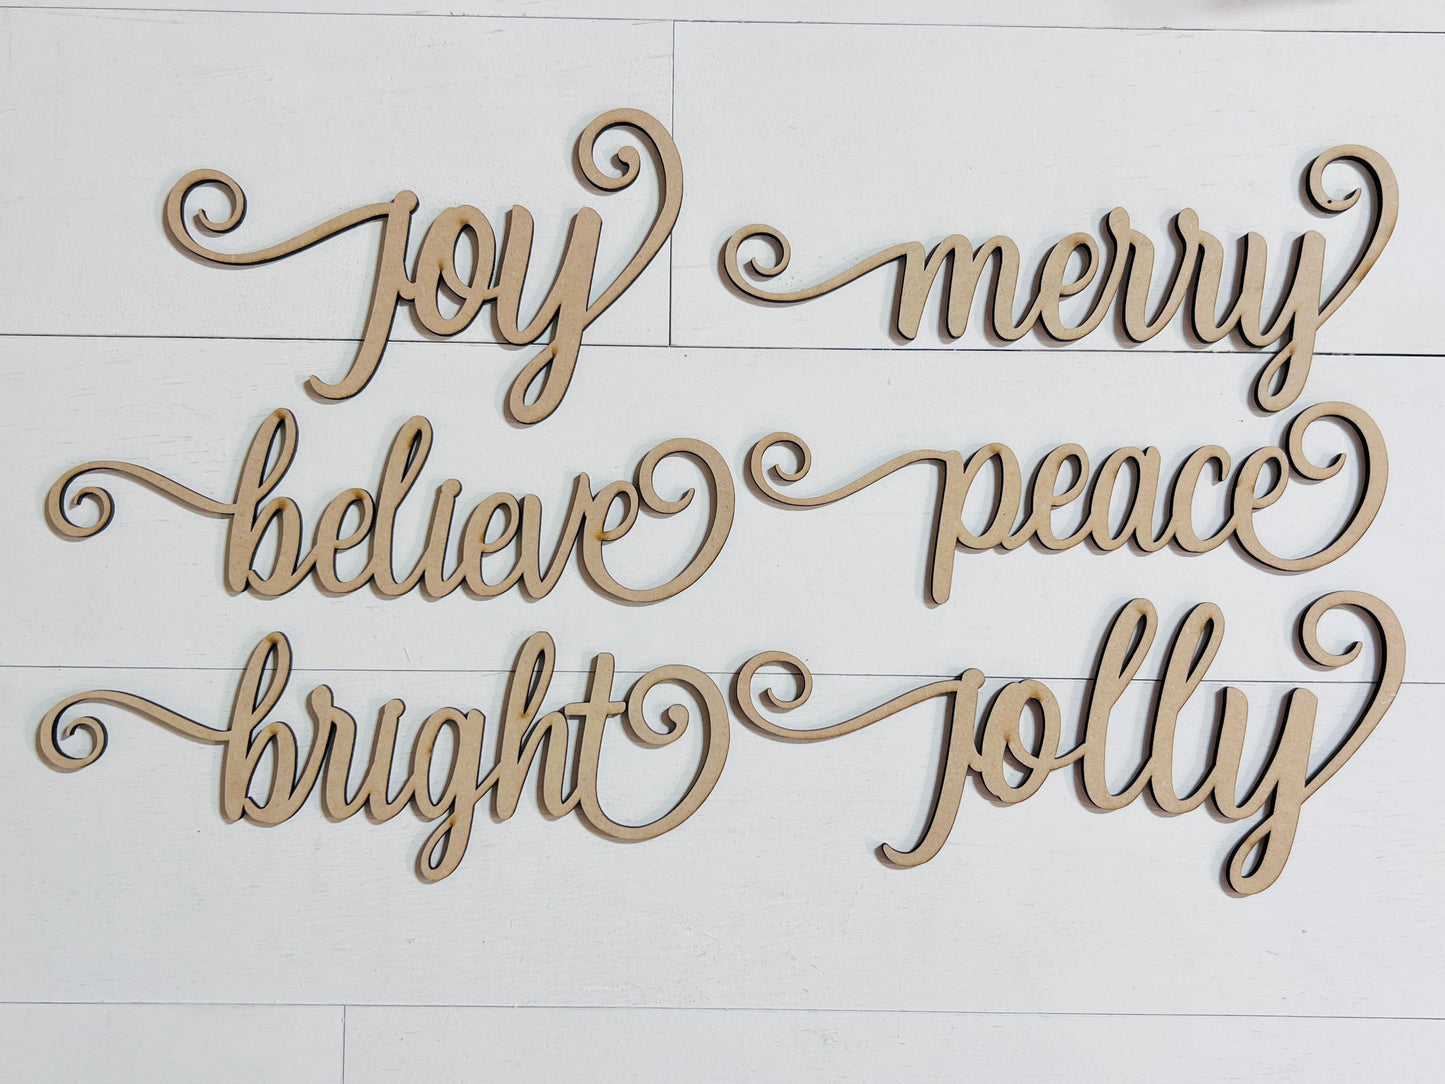 joy merry
believe peace
bright jolly